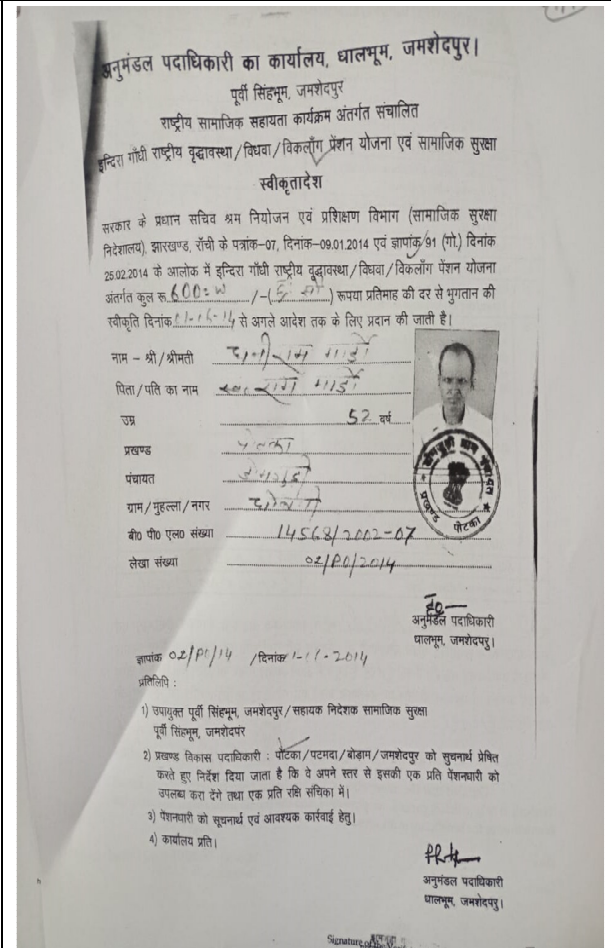 अनुमंडल पदाधिकारी का कार्यालय, धालभूम, जमशेदपुर।
पूर्वी सिंहभूम, जमशेदपुर
राष्ट्रीय सामाजिक सहायता कार्यक्रम अंतर्गत संचालित
इन्दिरा गाँधी राष्ट्रीय वृद्धावस्था/विधवा/विकलाँग पेंशन योजना एवं सामाजिक सुरक्षा
स्वीकृतादेश
सरकार के प्रधान सचिव श्रम नियोजन एवं प्रशिक्षण विभाग (सामाजिक सुरक्षा
निदेशालय), झारखण्ड, राँची के पत्रांक-07, दिनांक-09.01.2014 एवं ज्ञापांक 91 (गो.) दिनांक
25.02.2014 के आलोक में इन्दिरा गाँधी राष्ट्रीय वृद्धावस्था/विधवा/विकलाँग पेंशन योजना
अंतर्गत कुल रू 600 /-(छः सौ) रूपया प्रतिमाह की दर से भुगतान की
स्वीकृति दिनांक से अगले आदेश तक के लिए प्रदान की जाती है।
नाम - श्री/श्रीमती
पिता/पति का नाम
उम्र 52 वर्ष
प्रखण्ड
पंचायत
ग्राम/मुहल्ला/नगर
बी० पी० एल० संख्या 14568/2002-07
लेखा संख्या 02/PO/2014
प्रखण्ड पोटका
अनुमंडल पदाधिकारी
धालभूम, जमशेदपुर।
ज्ञापांक 02/PO/14 /दिनांक
प्रतिलिपि :
1) उपायुक्त पूर्वी सिंहभूम, जमशेदपुर/सहायक निदेशक सामाजिक सुरक्षा
पूर्वी सिंहभूम, जमशेदपर
2) प्रखण्ड विकास पदाधिकारी : पोटका/पटमदा/बोड़ाम/जमशेदपुर को सूचनार्थ प्रेषित
करते हुए निर्देश दिया जाता है कि वे अपने स्तर से इसकी एक प्रति पेंशनधारी को
उपलब्ध करा देंगे तथा एक प्रति रक्षि संचिका में।
3) पेंशनधारी को सूचनार्थ एवं आवश्यक कार्रवाई हेतु।
4) कार्यालय प्रति।
अनुमंडल पदाधिकारी
धालभूम, जमशेदपुर।
Signature